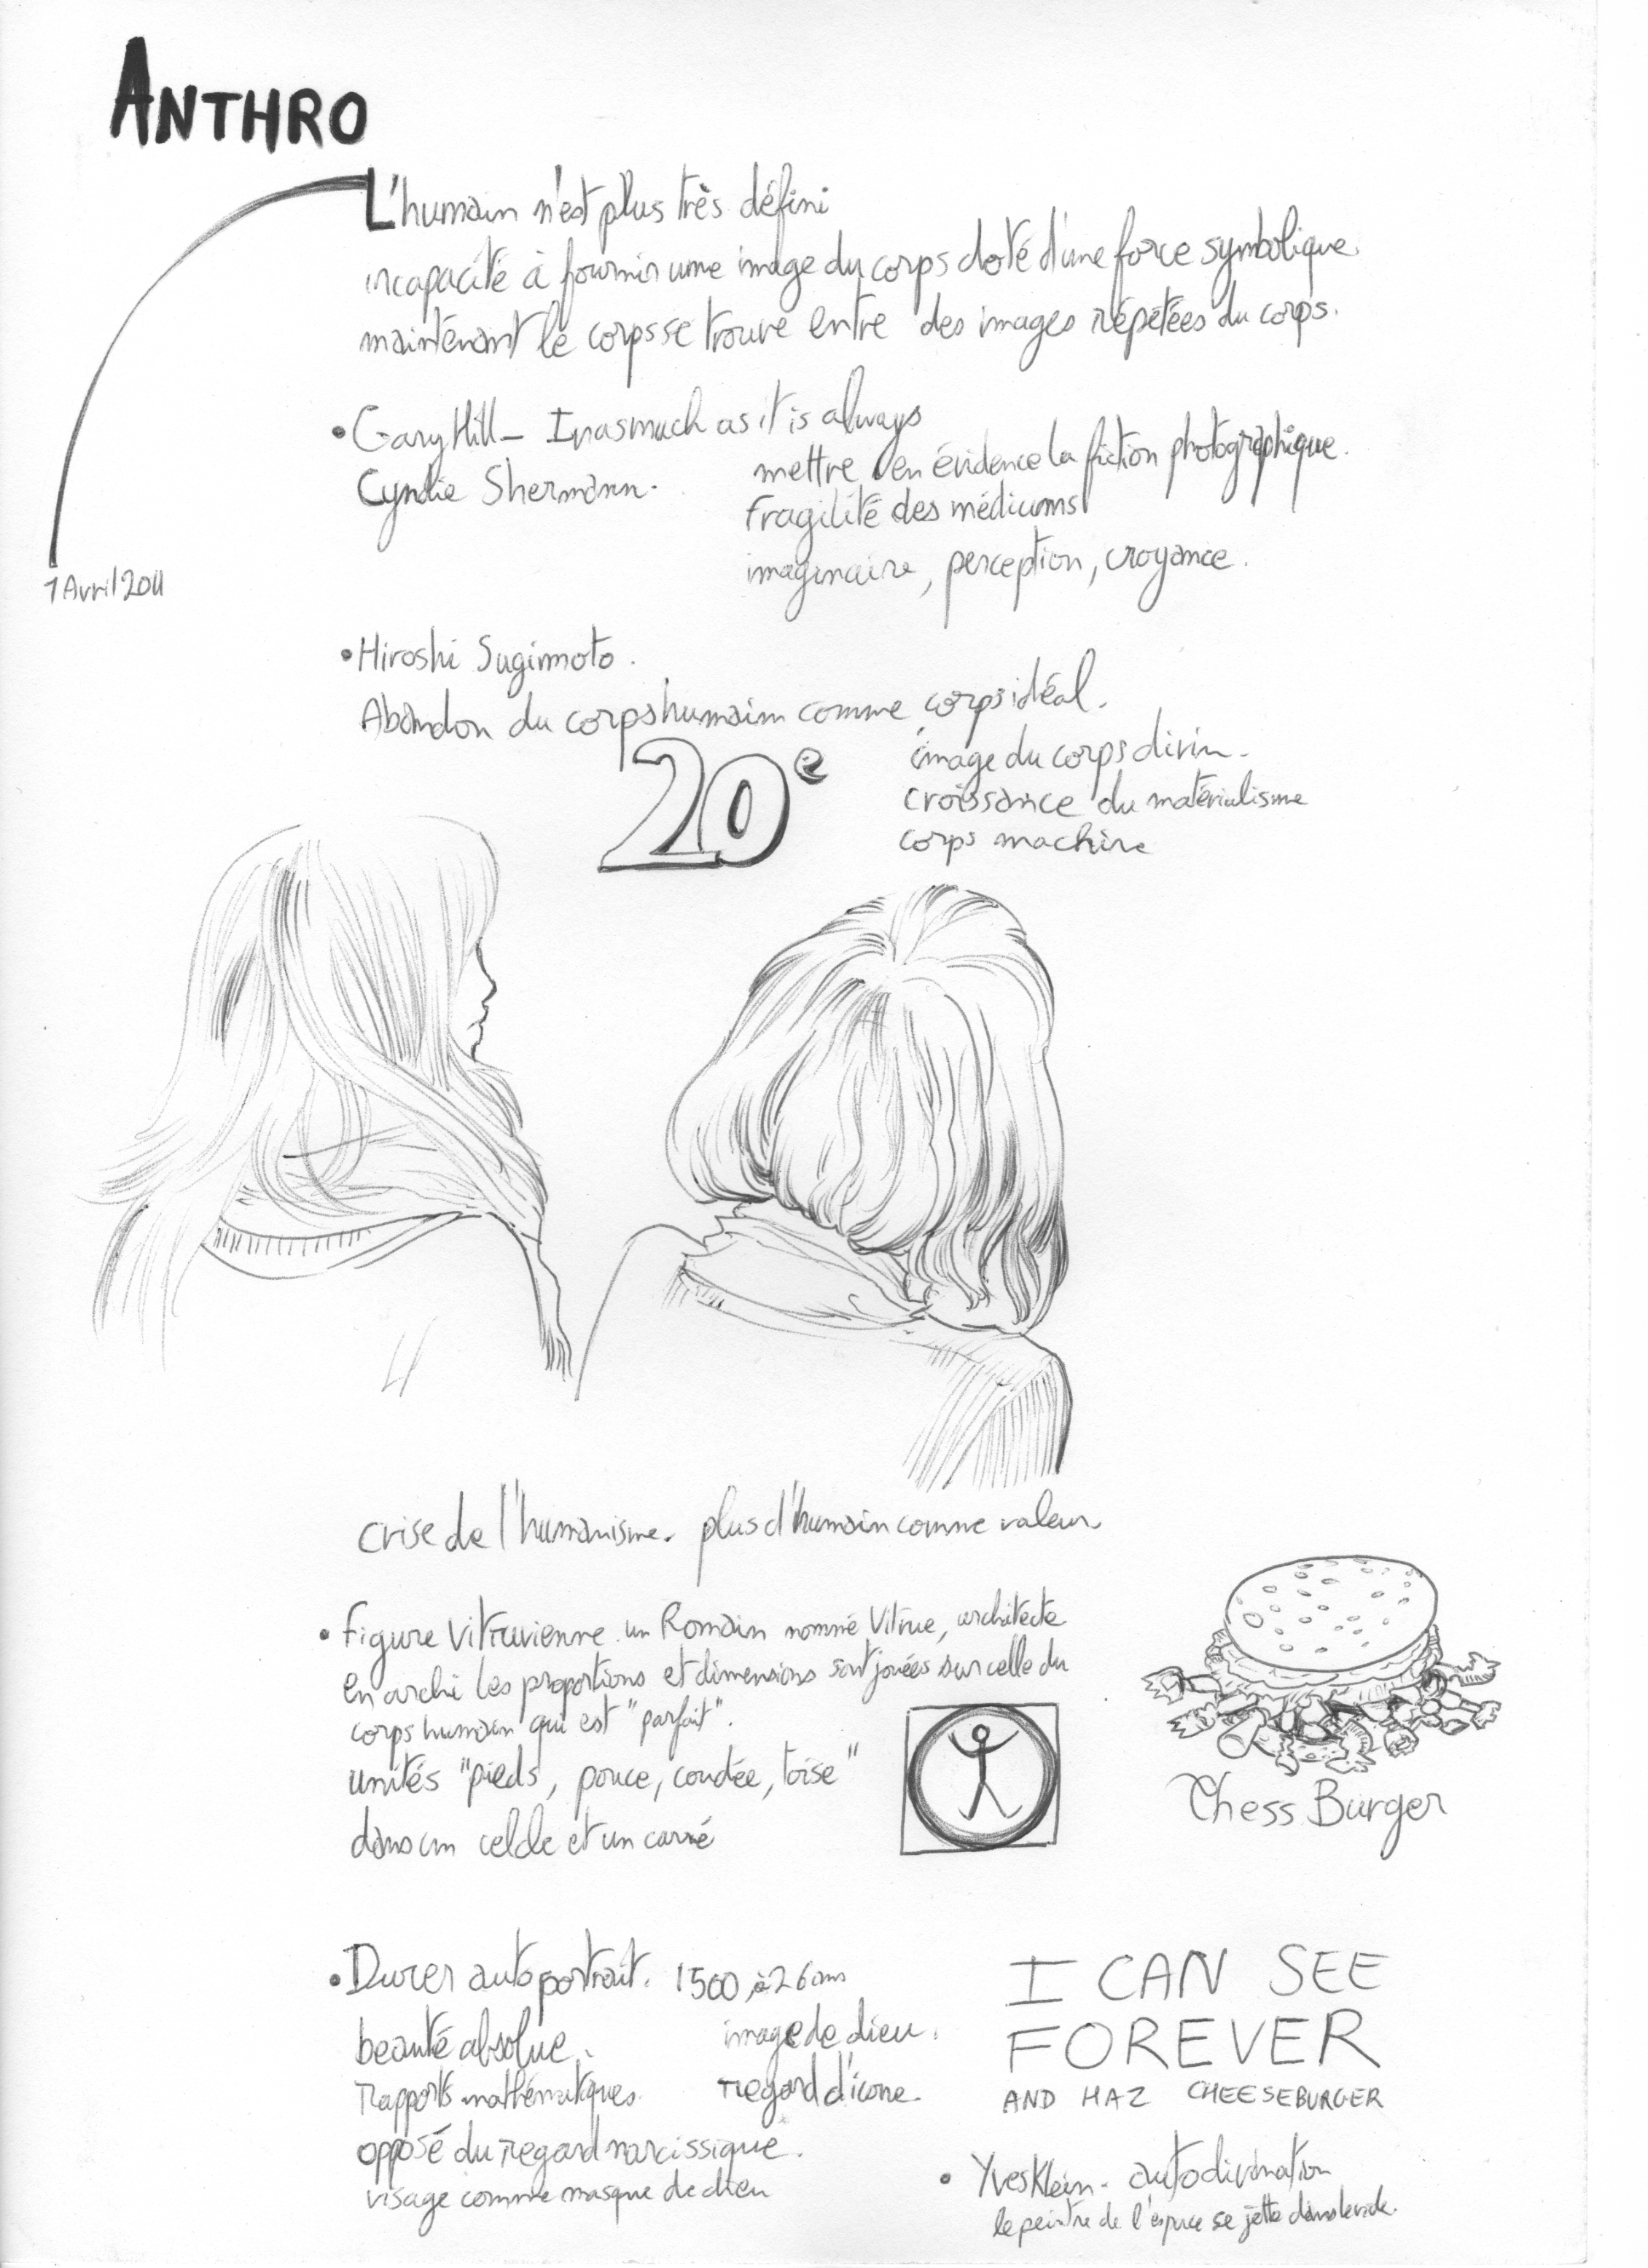 ANTHRO
L'humain n'est plus très défini
incapacité à fournir une image du corps doté d'une force symbolique.
maintenant le corps se trouve entre des images répétées du corps.
• Gary Hill – Inasmuch as it is always
Cyndie Shermann.
mettre en évidence la fiction photographique.
Fragilité des médiums
imaginaire, perception, croyance.
1 Avril 2011
• Hiroshi Sugimoto.
Abandon du corps humain comme corps idéal.
20e
image du corps divin.
croissance du matérialisme
corps machine
crise de l'humanisme. plus d'humain comme valeur.
• Figure vitruvienne. un Romain nommé Vitrue, architecte
en archi les proportions et dimensions sont jouées sur celle du
corps humain qui est "parfait".
unités "pieds, pouce, coudée, toise"
dans un et un carré
Chess Burger
• Durer autoportrait. 1500, à 26 ans
beauté absolue.
image de dieu.
Rapports mathématiques.
regard d'icone.
opposé du regard narcissique.
visage comme masque de dieu
I CAN SEE
FOREVER
AND HAZ CHEESEBURGER
• Yves Klein - autodivination
le peintre de l'espace se jette dans le vide.